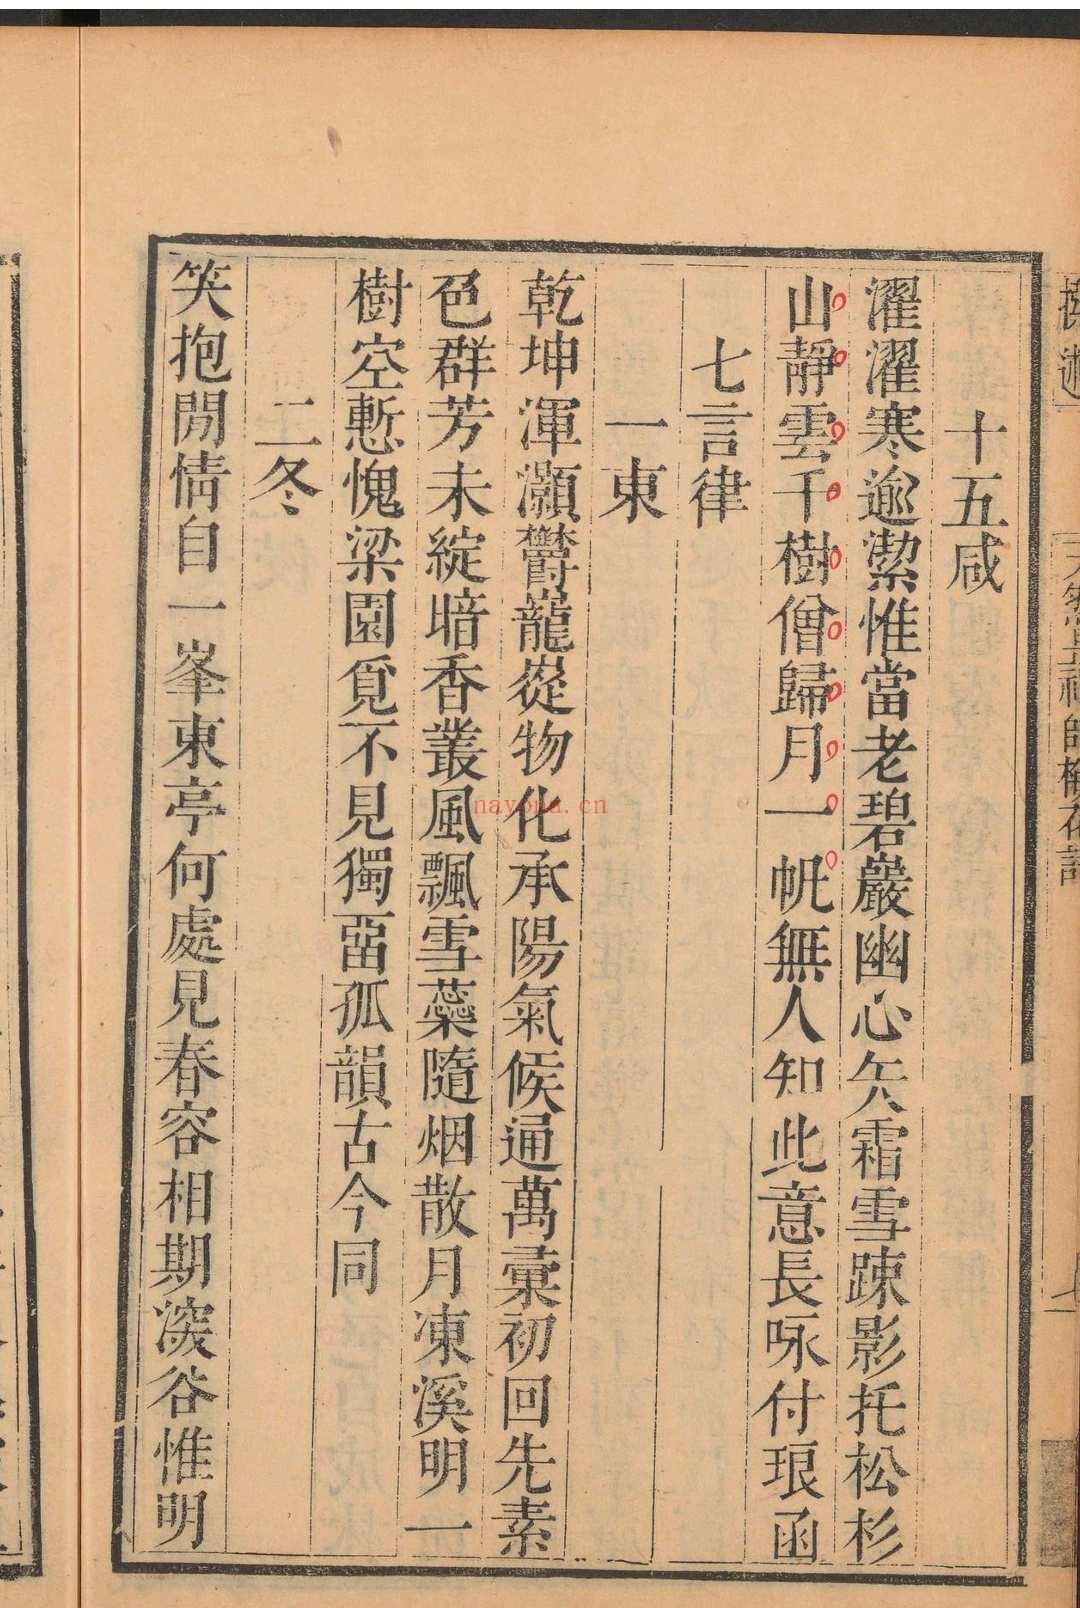 十五咸
濯濯寒逾潔惟當老碧巖幽心矢霜雪疎影托松杉
山靜雲千樹僧歸月一帆無人知此意長咏付琅函
七言律
一東
乾坤渾灝鬱巃嵸物化承陽氣候通萬彙初回先素
色群芳未綻暗香叢風飄雪蘂隨烟散月凍溪明一
樹空慙愧梁園覓不見獨畱孤韻古今同
二冬
笑抱閒情自一峯東亭何處見春容相期深谷惟明
nayona.cn